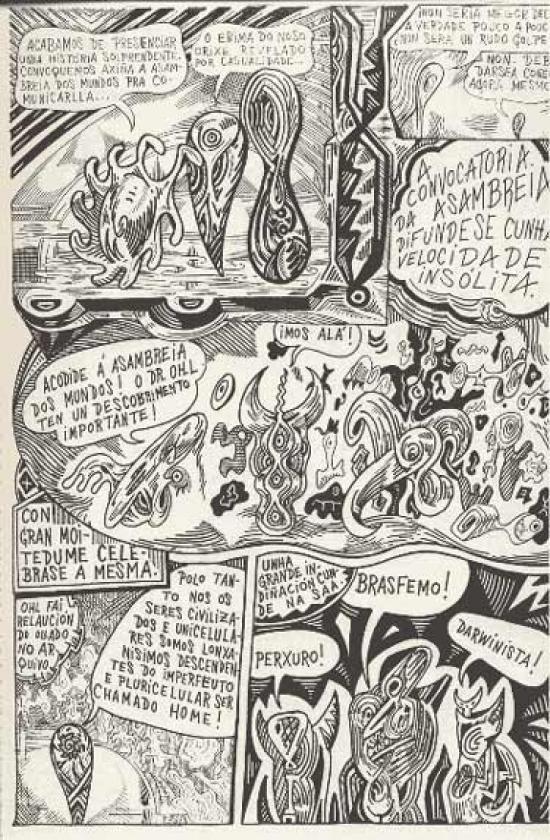 ACABAMOS DE PRESENCIAR
UNHA HISTORIA SORPRENDENTE.
CONVOQUEMOS AXIÑA A ASAM-
BREIA DOS MUNDOS PRA CO-
MUNICARLLA...
O ENIMA DO NOSO
ORIXE REVELADO
POR CASUALIDADE...
¿NON SERIA MELLOR DECIR
A VERDADE POUCO A POUCO
NON SERA UN RUDO GOLPE
NON. DEB
DARSEA
AGORA MESMO
A
CONVOCATORIA
DA ASAMBREIA
DIFUNDESE CUNHA
VELOCIDADE
INSÓLITA.
¡MOS ALÁ!
ACODIDE Á ASAMBREIA
DOS MUNDOS! O DR. OHL
TEN UN DESCOBRIMENTO
IMPORTANTE!
CON
GRAN MOI-
TEDUME CELE-
BRASE A MESMA.
OHL FAI
RELAUCIÓN
DO OUADO
NO AR
QUIVO.
POLO TAN-
TO NOS OS
SERES CIVILIZA-
DOS E UNICELULA-
RES SOMOS LONXA-
NISIMOS DESCENDEN-
TES DO IMPERFEUTO
E PLURICELULAR SER
CHAMADO HOME!
UNHA
GRANDE IN-
DIÑACIÓN CUN-
DE NA SAA.
BRASFEMO!
PERXURO!
DARWINISTA!